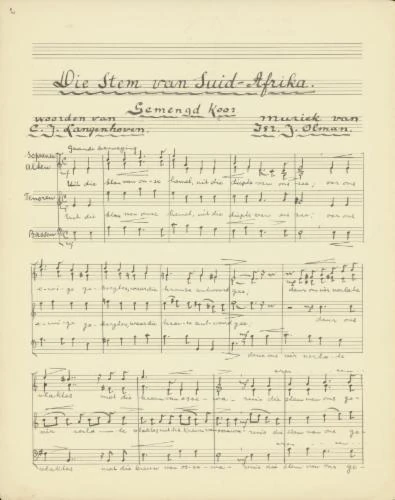 Die Stem van Suid-Afrika.
Gemengd Koor
woorden van
C. J. Langenhoven.
muziek van
Isr. J. Olman.
Gaande beweging
Sopranen
Alten
Uit die blou van on-se hemel, uit die diepte van ons see, oor ons
Tenoren
Uit die blou van onse hemel, uit die diepte van ons see; oor ons
Bassen
e-wi-ge ge-bergtes, waar die kranse antwoord gee, deur ons ver verlate
e-wi-ge ge-bergtes, waar die kranse antwoord gee, deur ons
deur ons ver verla-te
vlaktes met die kreun van osse-wa- ruis die stem van ons ge-
ver verla-te vlaktes met die kreun van ossewa- ruis die stem van ons ge-
vlaktes met die kreun van os-se-wa- ruis die stem van ons ge-